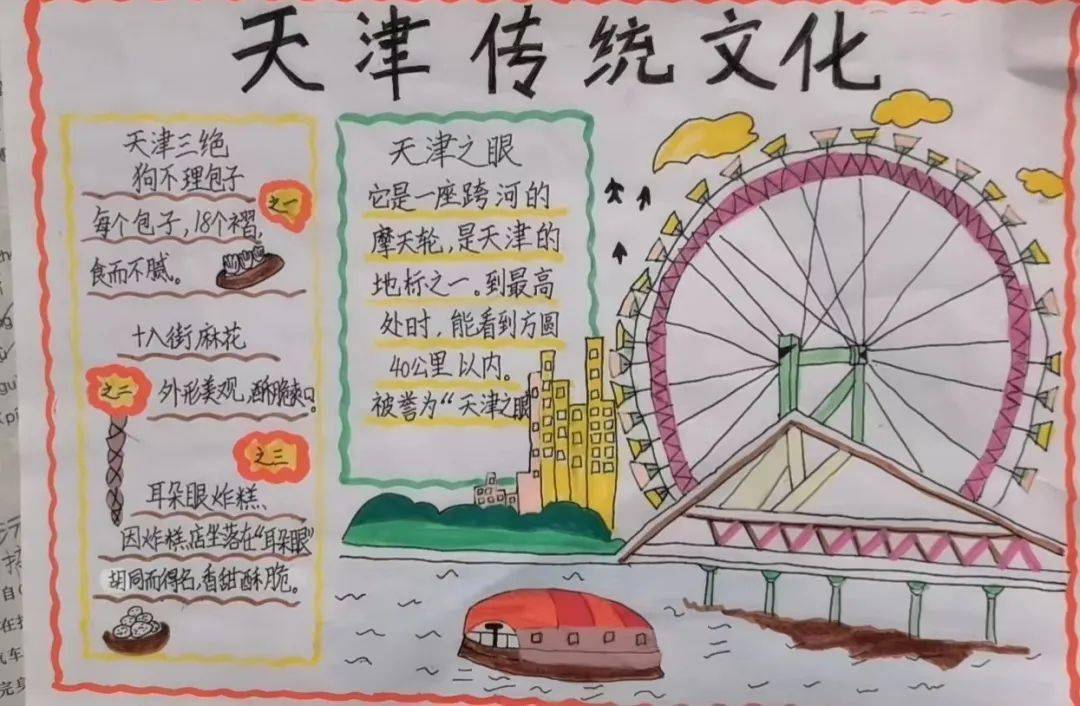 天津传统文化
天津三绝
狗不理包子
之一
每个包子,18个褶,
食而不腻。
十八街麻花
之二
外形美观,酥脆爽口。
之三
耳朵眼炸糕
因炸糕店坐落在“耳朵眼”
胡同而得名,香甜酥脆。
天津之眼
它是一座跨河的
摩天轮,是天津的
地标之一。到最高
处时,能看到方圆
40公里以内。
被誉为“天津之眼